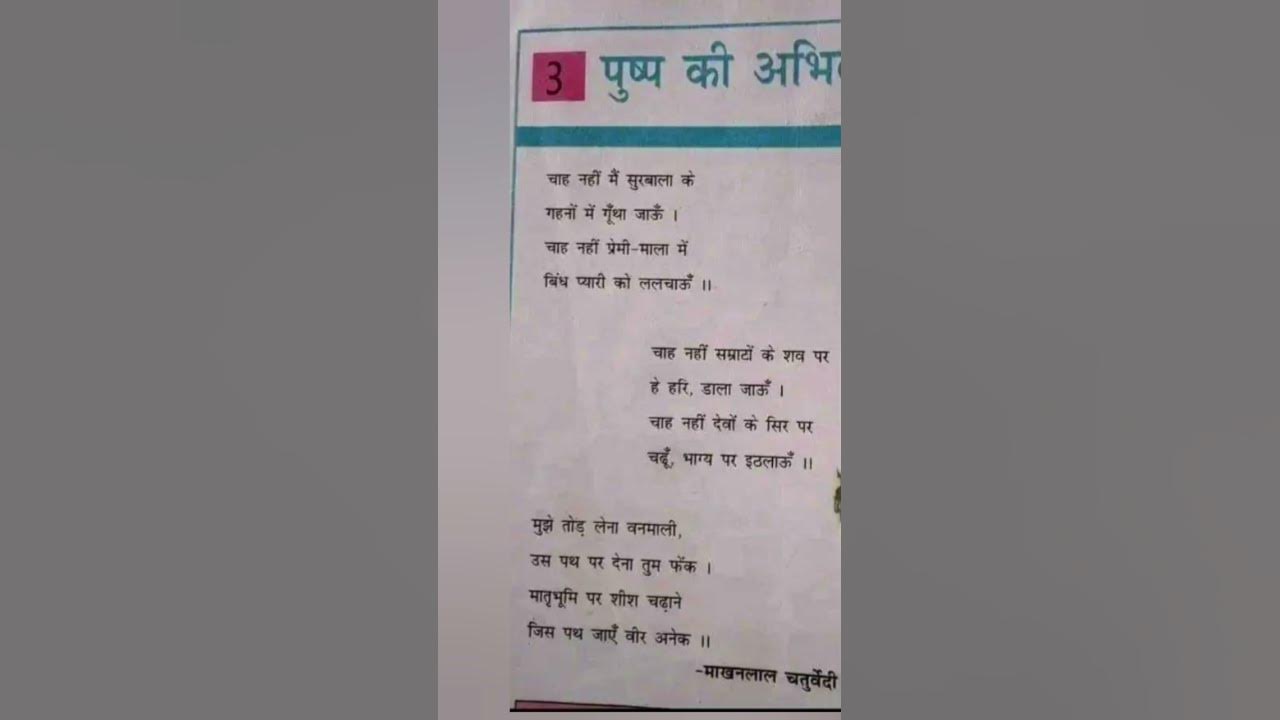 3 पुष्प की
चाह नहीं मैं सुरबाला के
गहनों में गूँथा जाऊँ ।
चाह नहीं प्रेमी-माला में
बिंध प्यारी को ललचाऊँ ।।
चाह नहीं सम्राटों के शव पर
हे हरि, डाला जाऊँ ।
चाह नहीं देवों के सिर पर
चढ़ूँ, भाग्य पर इठलाऊँ ।।
मुझे तोड़ लेना वनमाली,
उस पथ पर देना तुम फेंक ।
मातृभूमि पर शीश चढ़ाने
जिस पथ जाएँ वीर अनेक ।।
-माखनलाल चतुर्वेदी